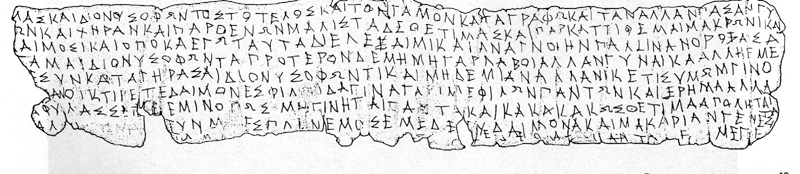 ΜΑΣΚΑΙΔΙΟΝΥΣΟΦΩΝΤΟΣΤΟΤΕΛΟΣΚΑΙΤΟΝΓΑΜΟΝΚΑΤΑΓΡΑΦΩΚΑΙΤΑΝΑΛΛΑΝΠΑΣΑΝΓΥ
ΝΚΑΙΧΗΡΑΝΚΑΙΠΑΡΘΕΝΩΝΜΑΛΙΣΤΑΔΕΘΕΤΙΜΑΣΚΑΙΠΑΡΚΑΤΤΙΘΕΜΑΙΜΑΚΡΩΝΙΚΑΙ
ΔΑΙΜΟΣΙΚΑΙΟΠΟΚΑΕΓΩΤΑΥΤΑΔΙΕΛΕΞΑΙΜΙΚΑΙΑΝΑΓΝΟΙΗΝΠΑΛΙΝΑΝΟΡΟΞΑΣΑ
ΓΑΜΑΙΔΙΟΝΥΣΟΦΩΝΤΑΠΡΟΤΕΡΟΝΔΕΜΗΜΗΓΑΡΛΑΒΟΙΑΛΛΑΝΓΥΝΑΙΚΑΑΛΛΗΕΜΕ
ΕΣΥΝΚΑΤΑΓΗΡΑΣΑΙΔΙΟΝΥΣΟΦΩΝΤΙΚΑΙΜΗΔΕΜΙΑΝΑΛΛΑΝΙΚΕΤΙΣΥΜΩΜΓΙΝΟ
ΑΝΟΙΚΤΙΡΕΤΕΔΑΙΜΟΝΕΣΦΙΛΟΙΔΑΓΙΝΑΓΑΡΙΜΕΦΙΛΩΝΠΑΝΤΩΝΚΑΙΕΡΗΜΑΑΛΛΑ
ΦΥΛΑΣΣΕΤΕΕΜΙΝΟΠΩΣΜΗΓΙΝΗΤΑΙΤΑΥΤΑΚΑΙΚΑΚΑΚΑΚΩΣΘΕΤΙΜΑΑΠΟΛΗΤΑΙ
ΑΛ ΥΝΜ ΕΣΠΛΗΝΕΜΟΣΕΜΕΔΕΕΥΔΑΙΜΟΝΑΚΑΙΜΑΚΑΡΙΑΝΓΕΝΕΣΤΑΙ
ΜΕΓΕ